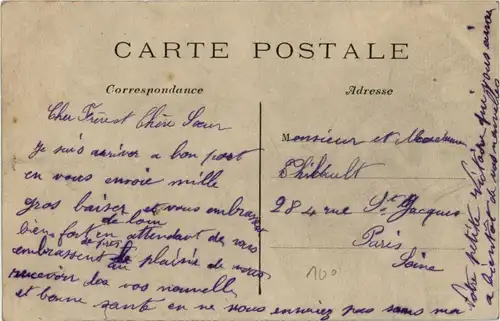 CARTE POSTALE
Correspondance
Adresse
Cher Frère et Chère Sœur
Je suis arriver a bon port
en vous envoie mille
gros baiser et vous embrassent
de loin
bien fort en attendant de vous
de près
embrassent au plaisir de vous
recevoir des vos nouvelle
et bonne santé en ne vous ennuiez pas sans ma
Monsieur et Madame
Thibault
284 rue St Jacques
Paris
Seine
100
Votre petite qui vous aime
a bientôt de vos nouvelles